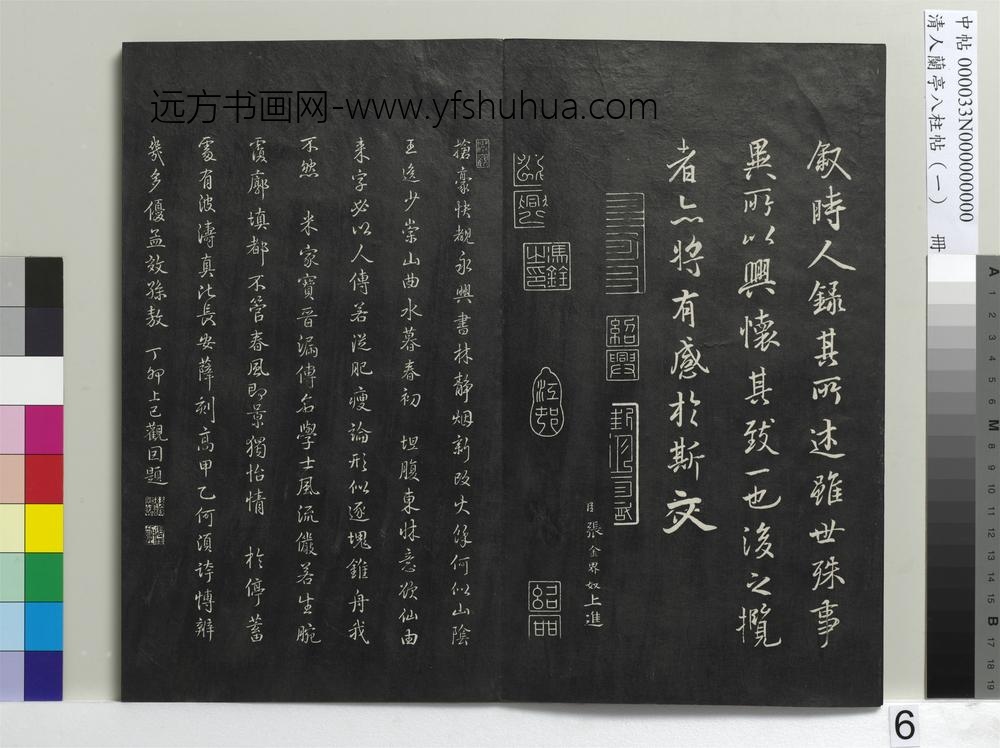 远方书画网-www.yfshuhua.com
中帖 000033N000000000
清人蘭亭八柱帖（一） 冊
敘時人錄其所述雖世殊事
異所以興懷其致一也後之攬
者亦將有感於斯文
臣張金界奴上進
紹興
馮銓之印
江邨
搶豪快覩永興書林靜烟新改火餘何似山陰
王逸少崇山曲水暮春初 坦腹東牀意欲仙由
来字必以人傳若從肥瘦論形似逐塊錐舟我
不然 米家寶晉漏傳名學士風流儼若生腕
有波濤真比長安薛刻高甲乙何須誇博辨
幾多優孟效孫敖 丁卯上巳觀回題
A 1 2 3 4 5 6 M 8 9 10 11 12 13 14 15 B 17 18 19
6